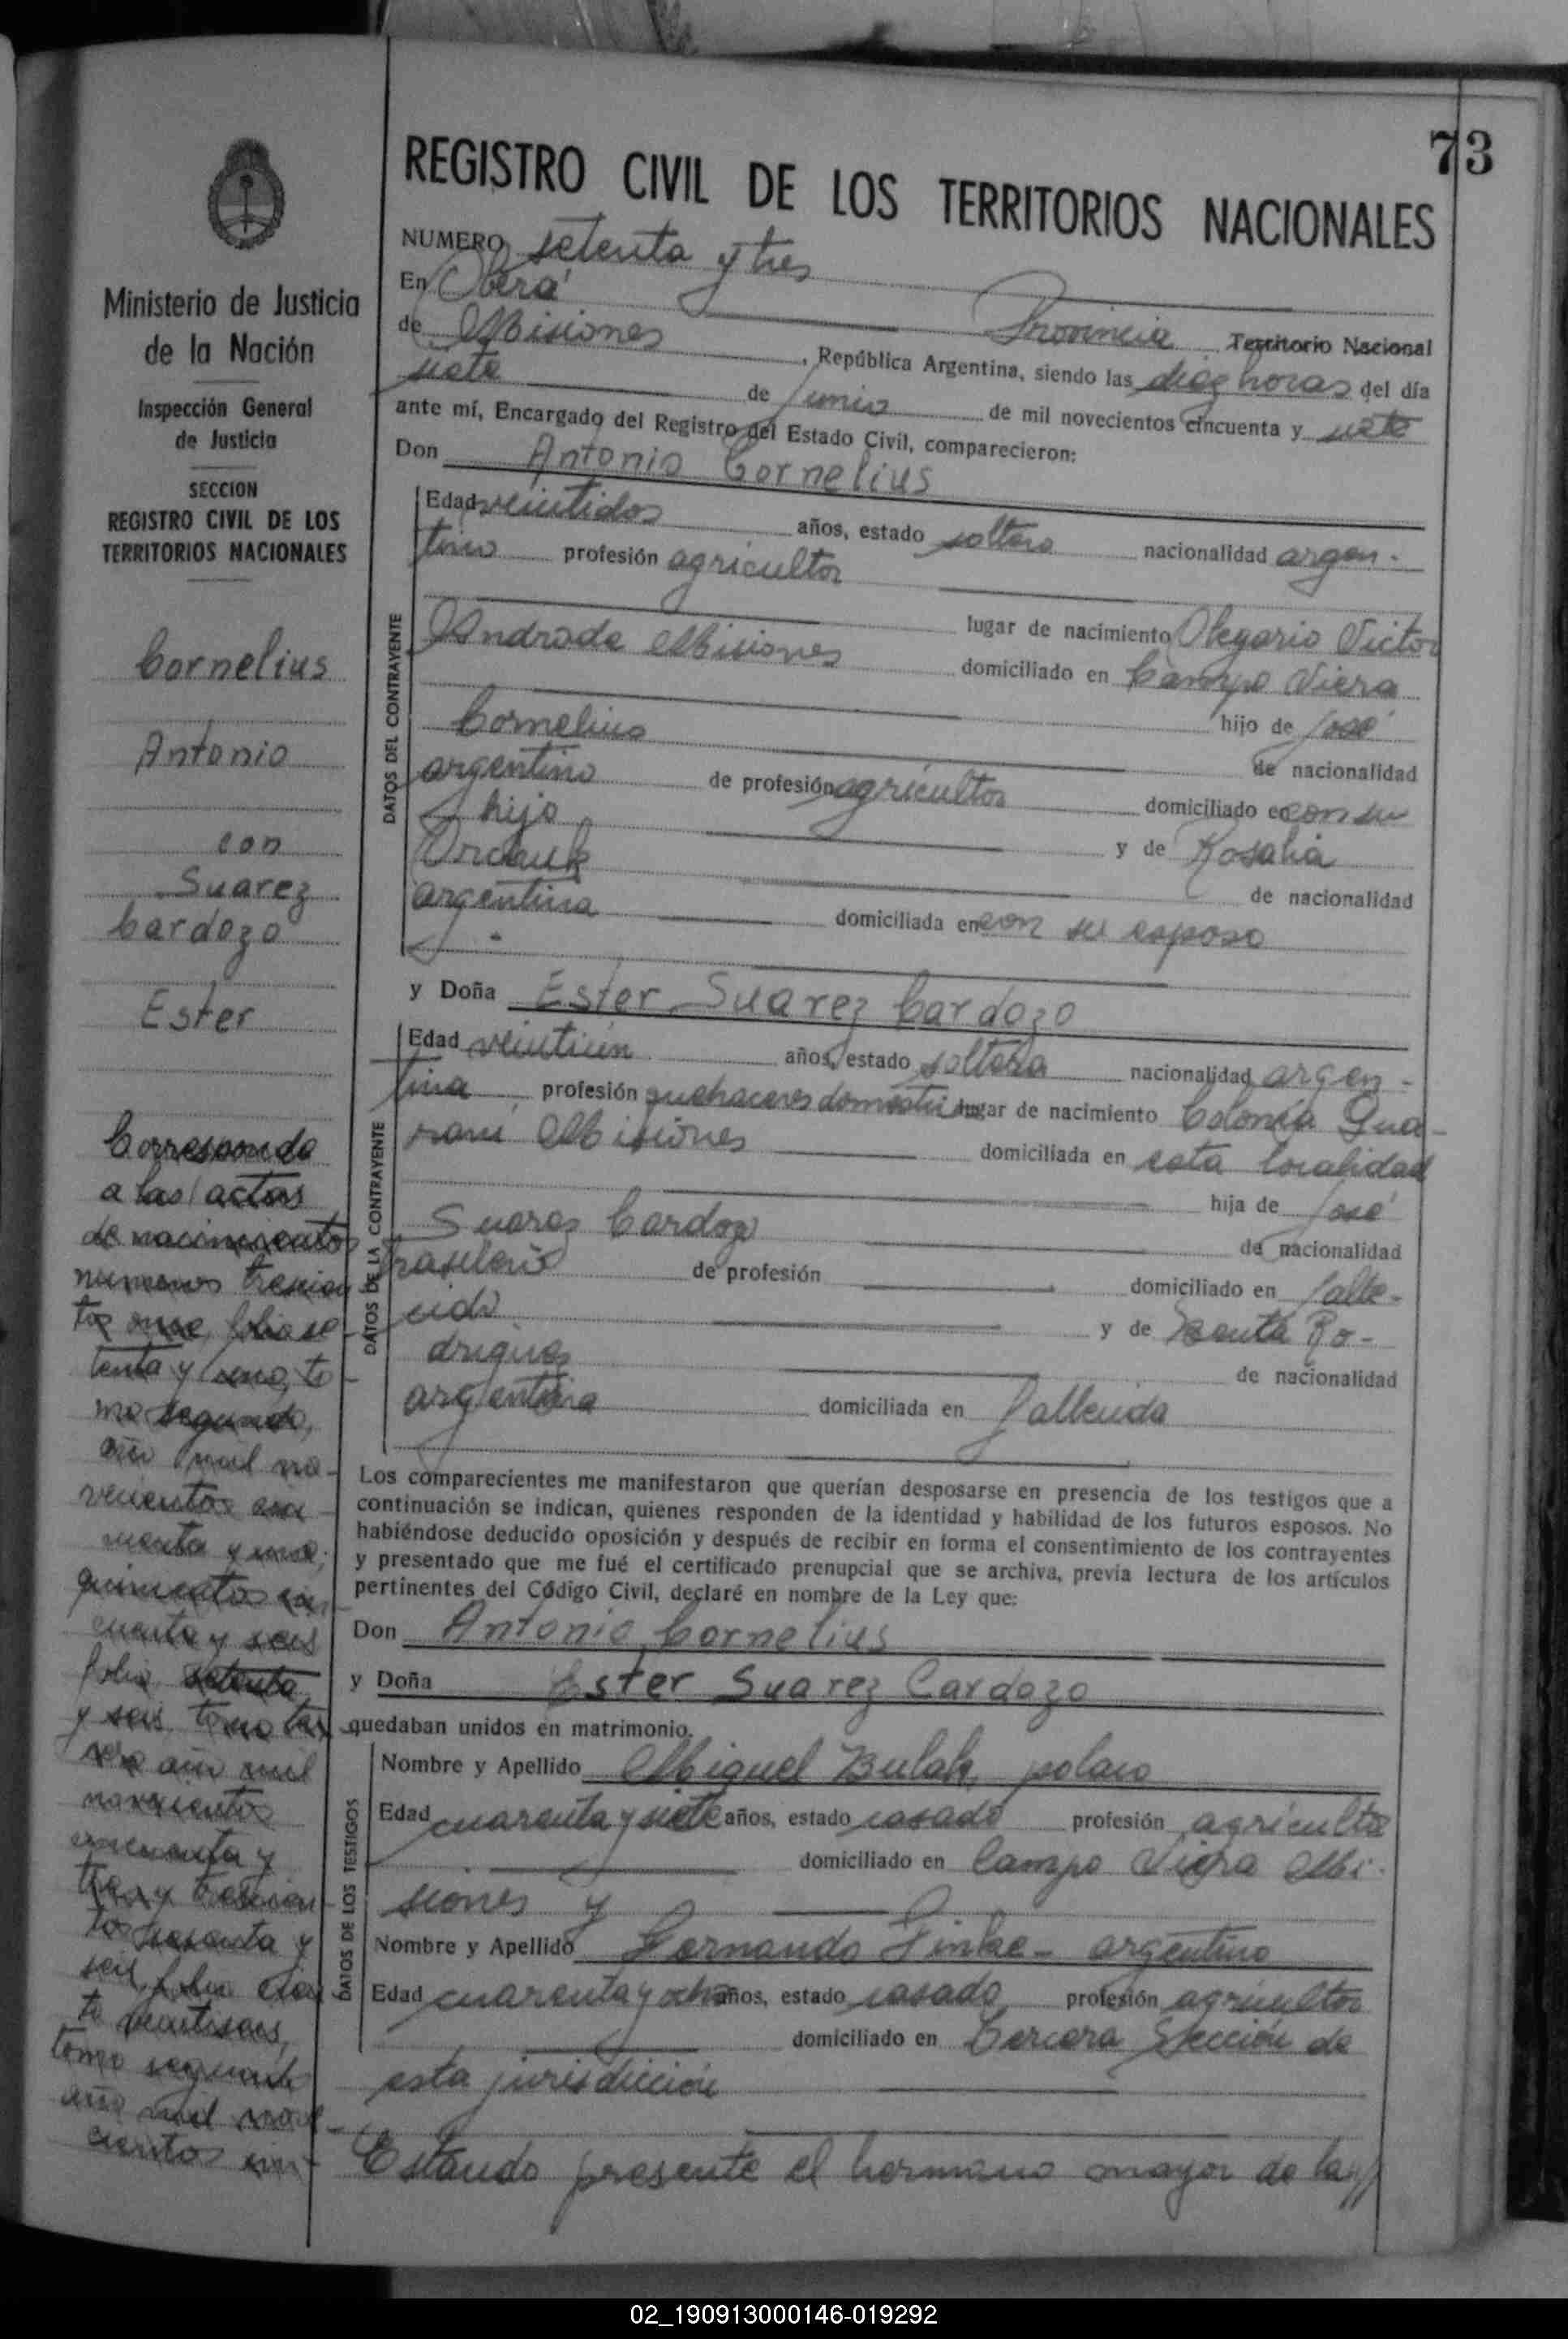 73
REGISTRO CIVIL DE LOS TERRITORIOS NACIONALES
NUMERO setenta y tres
En Oberá Provincia Territorio Nacional
de Misiones, República Argentina, siendo las diez horas del día
siete de junio de mil novecientos cincuenta y siete
ante mí, Encargado del Registro del Estado Civil, comparecieron:
Don Antonio Cornelius
DATOS DEL CONTRAYENTE
Edad veintidos años, estado soltero nacionalidad argen-
tino profesión agricultor
lugar de nacimiento Olegario Victor
Andrade Misiones domiciliado en Campo Viera
hijo de José
Cornelius de nacionalidad
argentino de profesión agricultor domiciliado en con su
hijo y de Rosalia
de nacionalidad
argentina domiciliada en con su esposo
y Doña Ester Suarez Cardozo
DATOS DE LA CONTRAYENTE
Edad veintiún años, estado soltera nacionalidad argen-
tina profesión quehaceres domésticos lugar de nacimiento Colonia Gua-
raní Misiones domiciliada en esta localidad
hija de José
Suarez Cardozo de nacionalidad
brasilero de profesión domiciliado en falle-
cido y de Benita Ro-
driguez de nacionalidad
argentina domiciliada en fallecida
Los comparecientes me manifestaron que querían desposarse en presencia de los testigos que a
continuación se indican, quienes responden de la identidad y habilidad de los futuros esposos. No
habiéndose deducido oposición y después de recibir en forma el consentimiento de los contrayentes
y presentado que me fué el certificado prenupcial que se archiva, previa lectura de los artículos
pertinentes del Código Civil, declaré en nombre de la Ley que:
Don Antonio Cornelius
y Doña Ester Suarez Cardozo
quedaban unidos en matrimonio.
DATOS DE LOS TESTIGOS
Nombre y Apellido Miguel Bulak, polaco
Edad cuarenta y siete años, estado casado profesión agricultor
domiciliado en Campo Viera Mi-
siones y
Nombre y Apellido Fernando Finke - argentino
Edad cuarenta y ocho años, estado casado profesión agricultor
domiciliado en Tercera Sección de
esta jurisdicción
Estando presente el hermano mayor de la //
Ministerio de Justicia
de la Nación
Inspección General
de Justicia
SECCION
REGISTRO CIVIL DE LOS
TERRITORIOS NACIONALES
Cornelius
Antonio
con
Suarez
Cardozo
Ester
Corresponde
a las actas
de nacimientos
numeros trescien
tos once, folio se
tenta y uno, to
mo segundo,
año mil no-
vecientos cin
cuenta y uno;
quinientos cin
cuenta y seis
folio setenta
y seis, tomo ter
cero año mil
novecientos
cincuenta y
tres y trescien
tos sesenta y
seis, folio cien
to veintiseis,
tomo segundo
año mil nove
cientos cin-
02_190913000146-019292